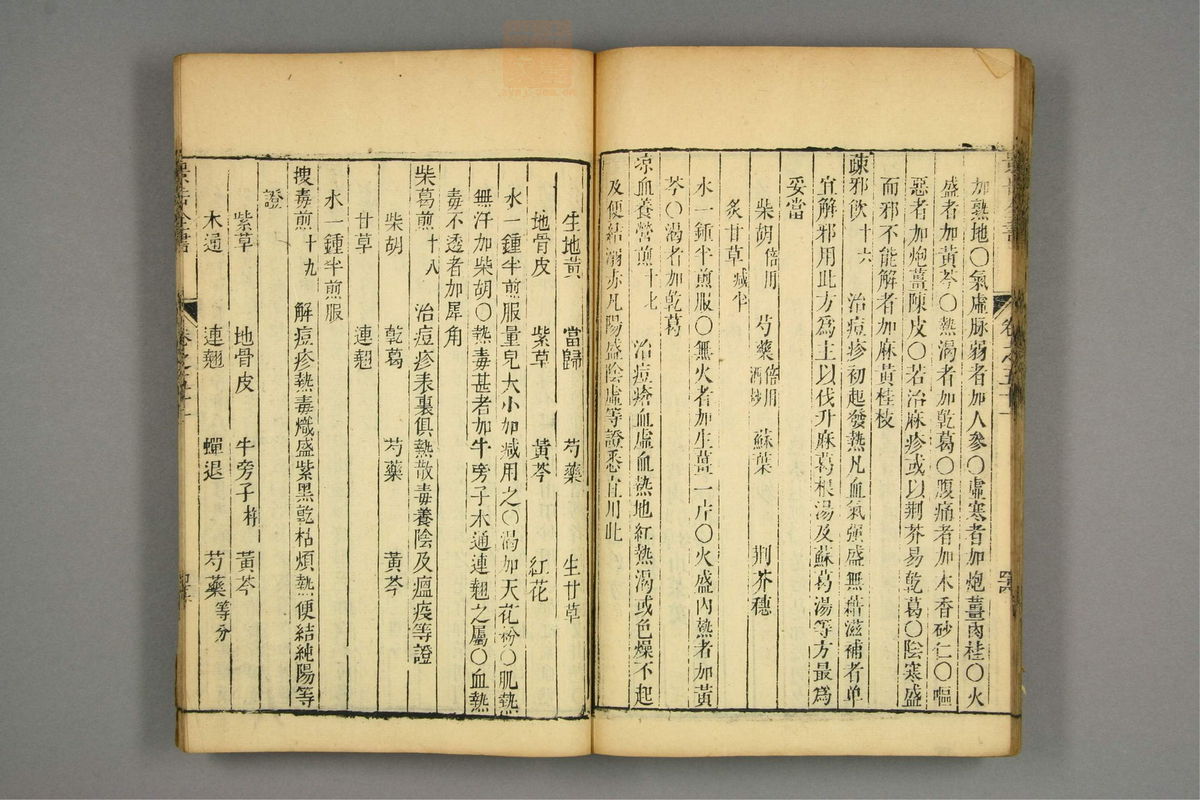 加熟地〇氣虛脉弱者加人參〇虛寒者加炮薑肉桂〇火
盛者加黃芩〇熱渴者加乾葛〇腹痛者加木香砂仁〇嘔
惡者加炮薑陳皮〇若治麻疹或以荆芥易乾葛〇陰寒盛
而邪不能解者加麻黃桂枝
疎邪飲十六 治痘疹初起發熱凡血氣強盛無藉滋補者單
宜解邪用此方爲主以代升麻葛根湯及蘇葛湯等方最爲
妥當
柴胡倍用 芍藥倍用酒炒 蘇葉 荆芥穗
炙甘草减半
水一鍾半煎服〇無火者加生薑一片〇火盛內熱者加黃
芩〇渴者加乾葛
凉血養營煎十七 治痘瘡血虛血熱地紅熱渴或色燥不起
及便結溺赤凡陽盛陰虛等證悉宜用此
生地黃 當歸 芍藥 生甘草
地骨皮 紫草 黃芩 紅花
水一鍾半煎服量兒大小加减用之〇渴加天花粉〇肌熱
無汗加柴胡〇熱毒甚者加牛旁子木通連翹之屬〇血熱
毒不透者加犀角
柴葛煎十八 治痘疹表裏俱熱散毒養陰及瘟疫等證
柴胡 乾葛 芍藥 黃芩
甘草 連翹
水一鍾半煎服
搜毒煎十九 解痘疹熱毒熾盛紫黑乾枯煩熱便結純陽等
證
紫草 地骨皮 牛旁子 黃芩
木通 連翹 蟬退 芍藥等分